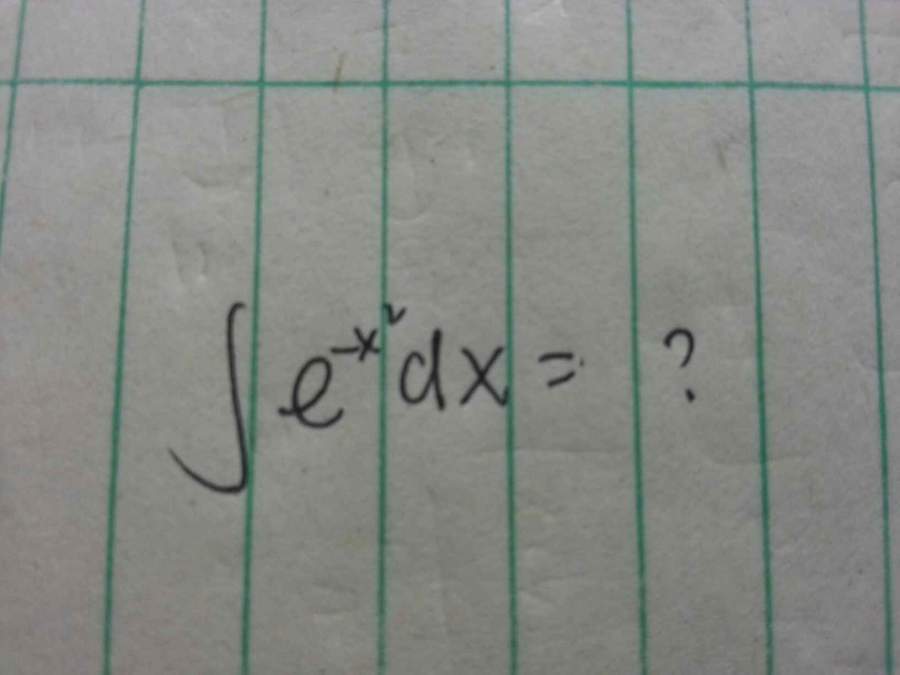 ∫ e^{-x^2} dx = ?